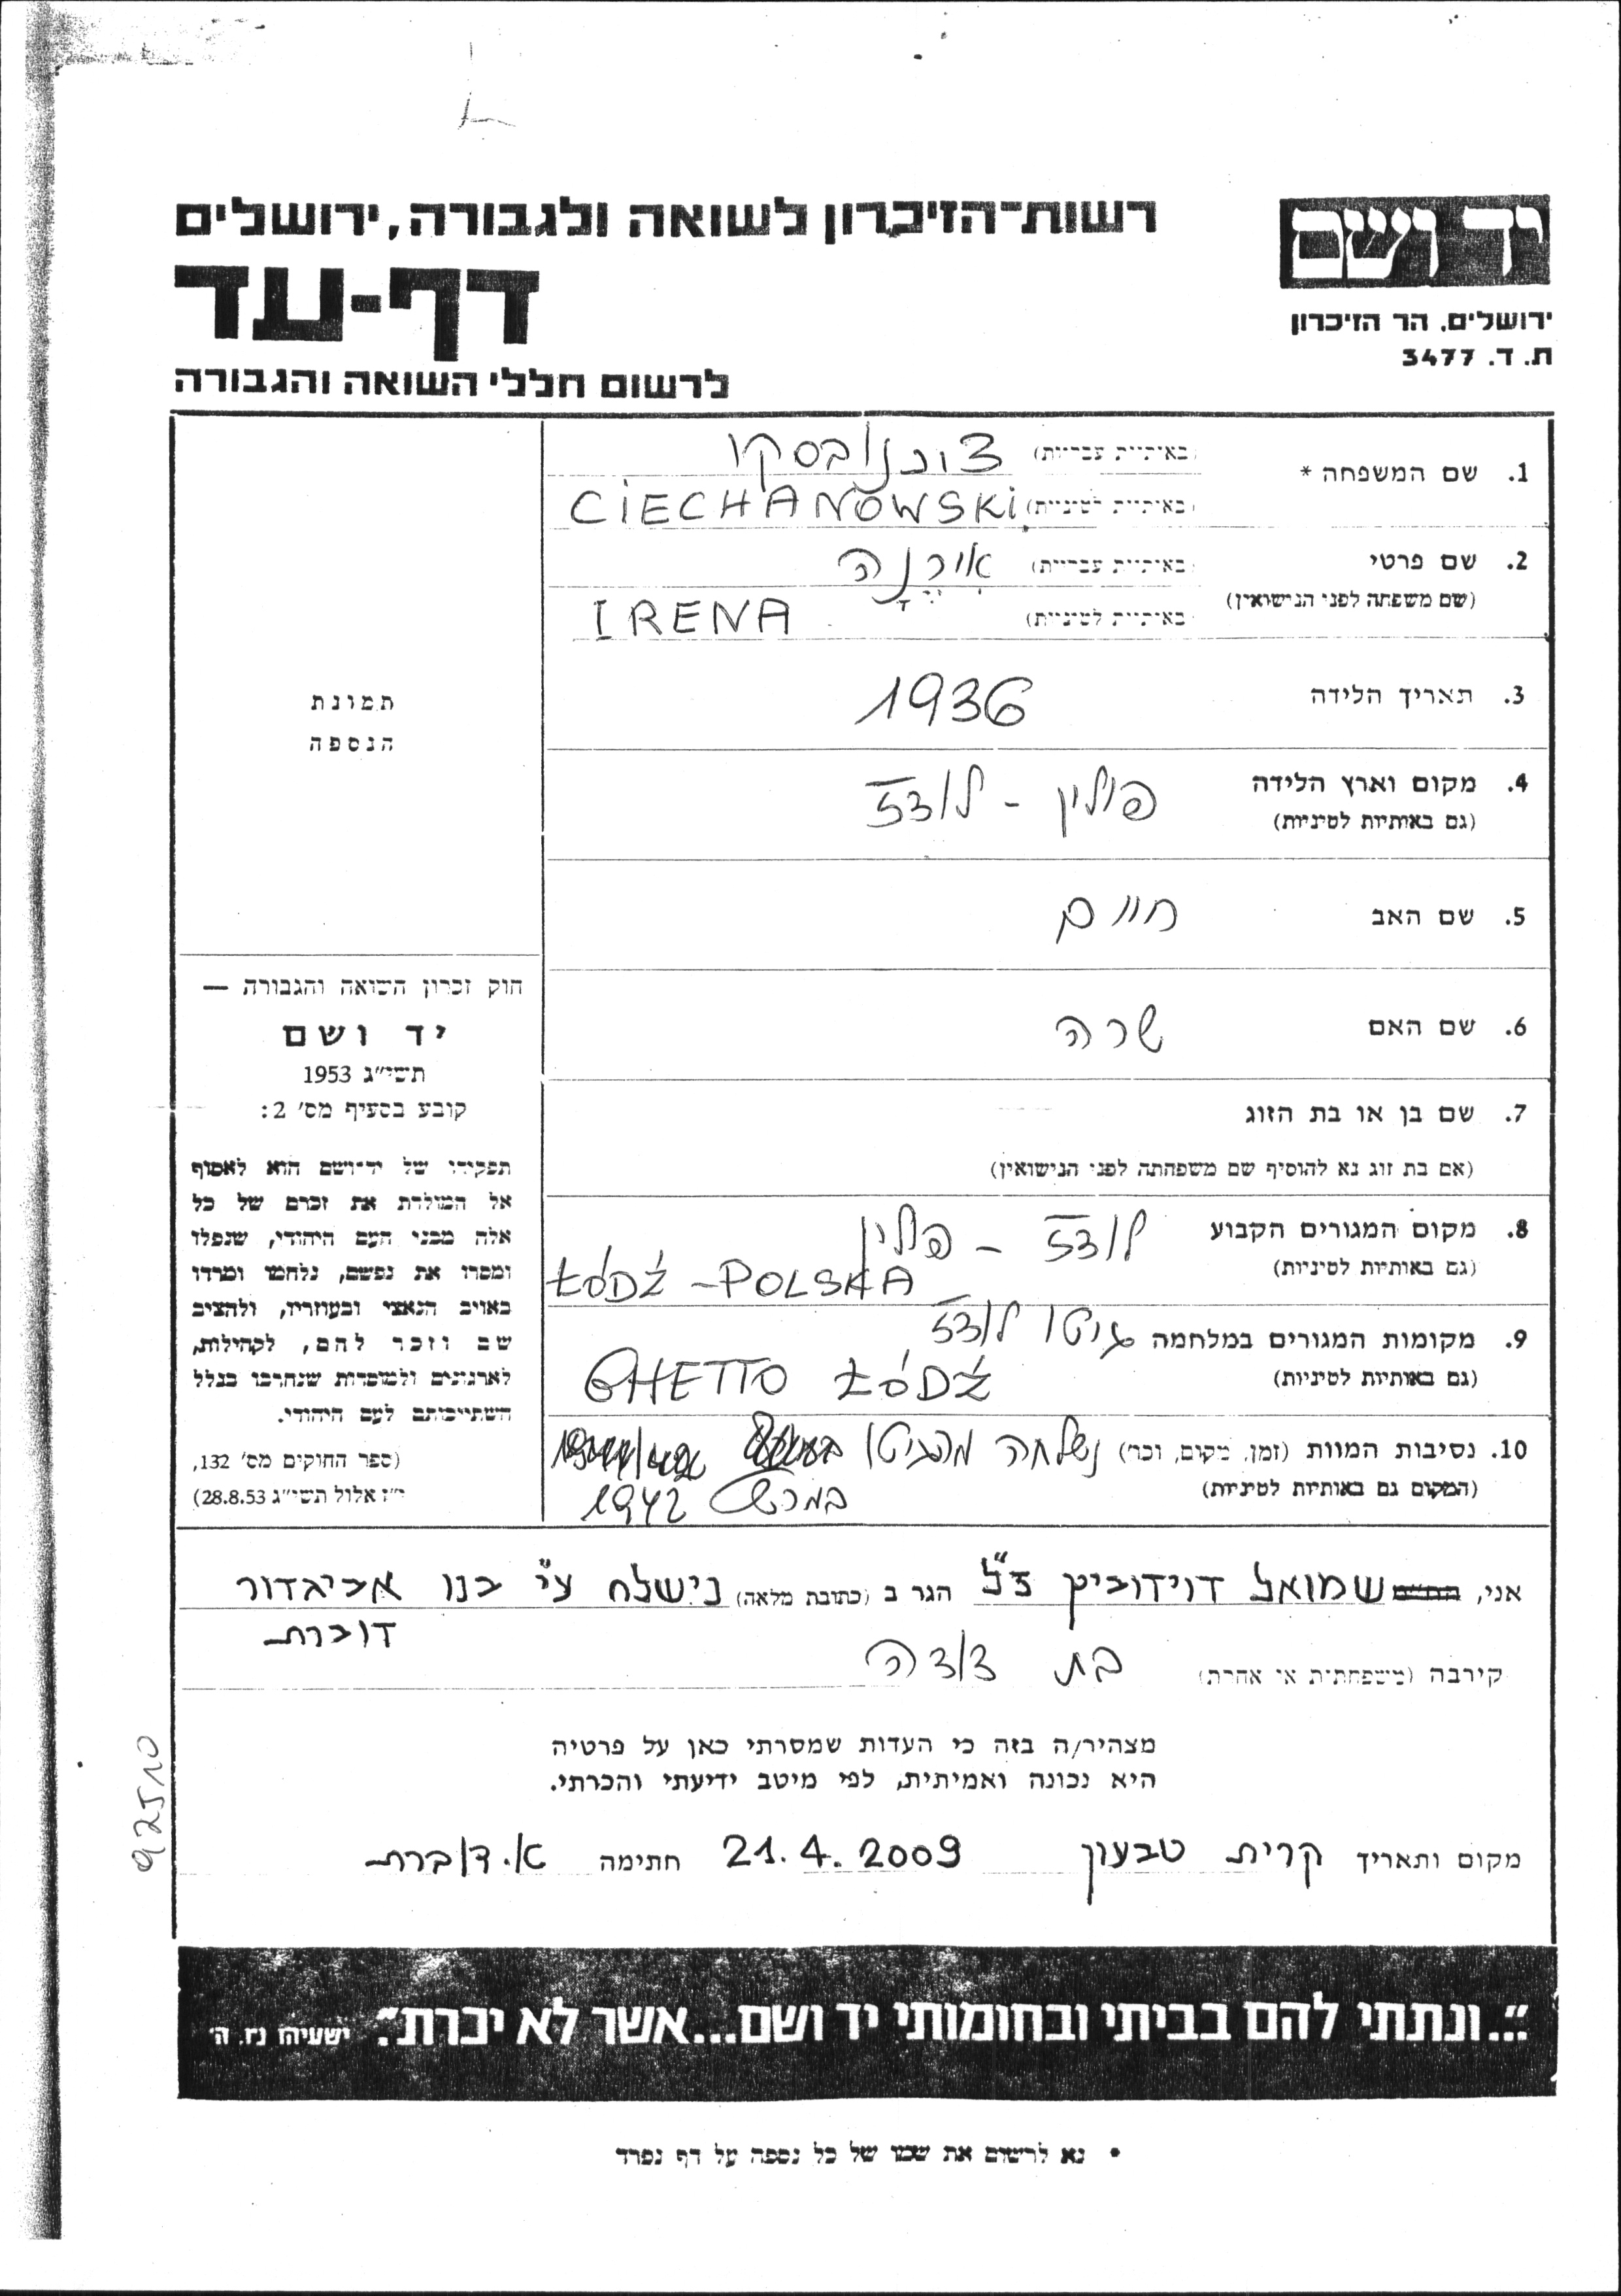 רשות־הזיכרון לשואה ולגבורה, ירושלים
דף-עד
לרשום חללי השואה והגבורה
יד ושם
ירושלים. הר הזיכרון
ת. ד. 3477
1. שם המשפחה * (באותיות עבריות) צ'כנובסקי
(באותיות לטיניות) CIECHANOWSKI
2. שם פרטי (באותיות עבריות) אִירֶנָה
(שם משפחה לפני הנישואין) (באותיות לטיניות) IRENA
3. תאריך הלידה 1936
4. מקום וארץ הלידה פולין - לודז
(גם באותיות לטיניות)
5. שם האב חיים
6. שם האם שרה
7. שם בן או בת הזוג
(אם בת זוג נא להוסיף שם משפחתה לפני הנישואין)
8. מקום המגורים הקבוע לודז - פולין
(גם באותיות לטיניות) ŁÓDŹ - POLSKA
9. מקומות המגורים במלחמה גיטו לודז
(גם באותיות לטיניות) GHETTO ŁÓDŹ
10. נסיבות המוות (זמן, מקום, וכו') נשלחה מהגיטו
(המקום גם באותיות לטיניות) במרץ 1942
תמונת
הנספה
חוק זכרון השואה והגבורה —
יד ושם
תשי״ג 1953
קובע בסעיף מס' 2:
תפקידו של יד־ושם הוא לאסוף
אל המולדת את זכרם של כל
אלה מבני העם היהודי, שנפלו
ומסרו את נפשם, נלחמו ומרדו
באויב הנאצי ובעוזריו, ולהציב
שם וזכר להם, לקהילות,
לארגונים ולמוסדות שנחרבו בגלל
השתייכותם לעם היהודי.
(ספר החוקים מס' 132,
י״ז אלול תשי״ג 28.8.53)
אני, שמואל דוידוביץ ז"ל הגר ב (כתובת מלאה) נישלח ע"י בנו אביגדור
דוברת
קירבה (משפחתית או אחרת) בת דודה
מצהיר/ה בזה כי העדות שמסרתי כאן על פרטיה
היא נכונה ואמיתית, לפי מיטב ידיעתי והכרתי.
מקום ותאריך קרית טבעון 21.4.2009 חתימה א. דוברת
92510
"...ונתתי להם בביתי ובחומותי יד ושם...אשר לא יכרת". ישעיהו נו, ה'
* נא לרשום את שמו של כל נספה על דף נפרד